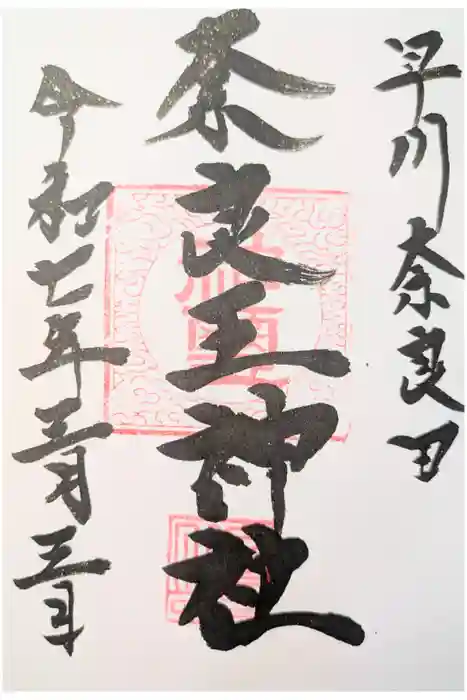 早川奈良田
奈良王神社
令和七年三月三日